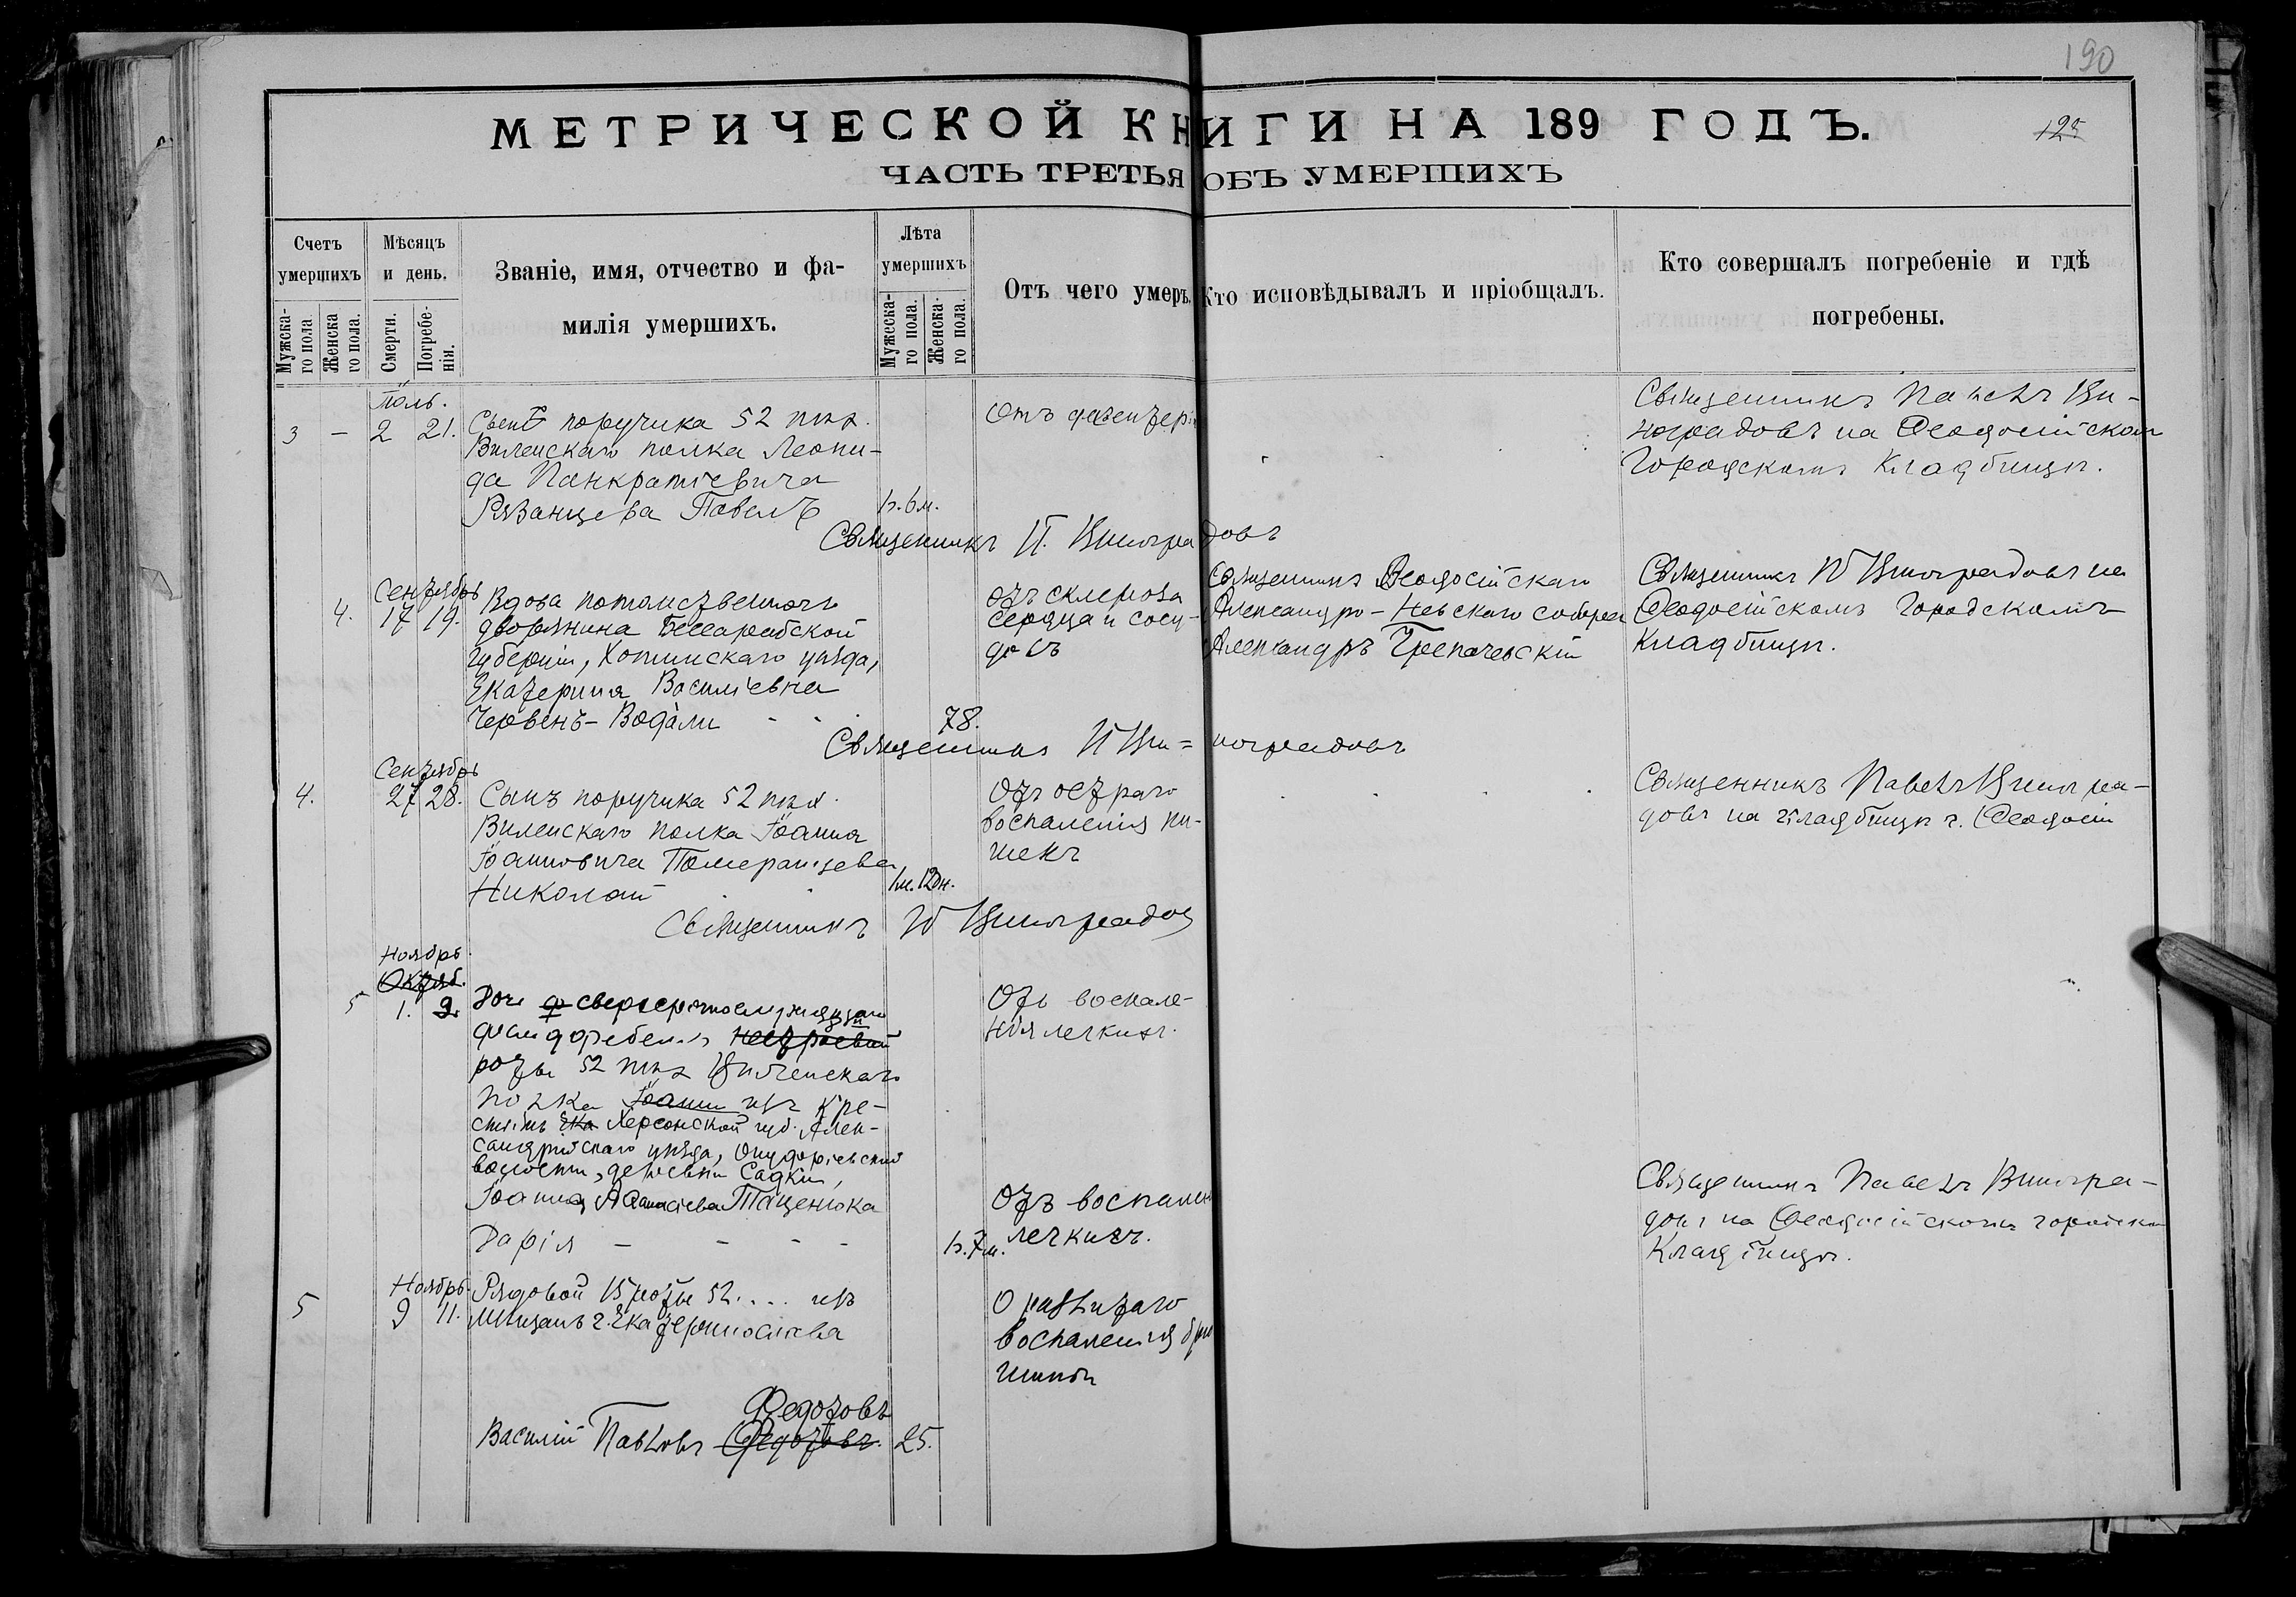 190
МЕТРИЧЕСКОЙ КНИГИ НА 189 ГОДЪ.
125
ЧАСТЬ ТРЕТЬЯ ОБЪ УМЕРШИХЪ
Счетъ умершихъ
Мужескаго пола.
Женскаго пола.
Мѣсяцъ и день.
Смерти.
Погребенія.
Званіе, имя, отчество и фа-
милія умершихъ.
Лѣта умершихъ
Мужескаго пола.
Женскаго пола.
Отъ чего умеръ.
Кто исповѣдывалъ и пріобщалъ.
Кто совершалъ погребеніе и гдѣ
погребены.
Іюль.
3 - 2 21.
Сынъ поручика 52 пѣх.
Виленскаго полка Леони-
да Панкратіевича
Рязанцева Павелъ
1г. 6м.
Отъ дизентеріи
Священникъ Павелъ Ви-
ноградовъ на Ѳеодосійскомъ
Городскомъ Кладбищѣ.
Священникъ П. Виноградовъ
Сентябрь
4. 17 19.
Вдова потомственнаго
дворянина Бессарабской
губерніи, Хотинскаго уѣзда,
Екатерина Василіевна
Червенъ-Водали
78.
отъ склероза
сердца и сосу-
довъ
Священникъ Ѳеодосійскаго
Александро-Невскаго собора
Александръ
Священникъ П Виноградовъ на
Ѳеодосійскомъ Городскомъ
Кладбищѣ.
Священникъ П Ви=ноградовъ
Сентябрь
4. 27 28.
Сынъ поручика 52 пѣх.
Виленскаго полка Іоанна
Іоанновича Померанцева
Николай
1м. 12дн.
Отъ остраго
воспаленія ки-
шекъ
Священникъ Павелъ Виногра-
довъ на кладбищѣ г. Ѳеодосіи
Священникъ П Виноградовъ
Ноябрь.
Октяб.
5 1. 2.
Дочь сверхсрочнослужащаго
фельдфебеля нестроевой
роты 52 пѣх Виленскаго
полка Іоанна изъ кре-
стьянъ Ека Херсонской губ. Алек-
сандрійскаго уѣзда, Онуфріевской
волости, деревни Садки,
Іоанна Аѳанасіева Таценюка
Дарія - - - -
1г. 7м.
Отъ воспале-
нія легкихъ.
Отъ воспален
легкихъ.
Священникъ Павелъ Виногра-
довъ на Ѳеодосійскомъ городском
Кладбищѣ.
Ноябрь.
5 9 11.
Рядовой 15 роты 52.... изъ
мѣщанъ г. Екатеринослава
Василій Павловъ Федотовъ. Федотовъ
25.
О развитаго
воспаленія брю
шины